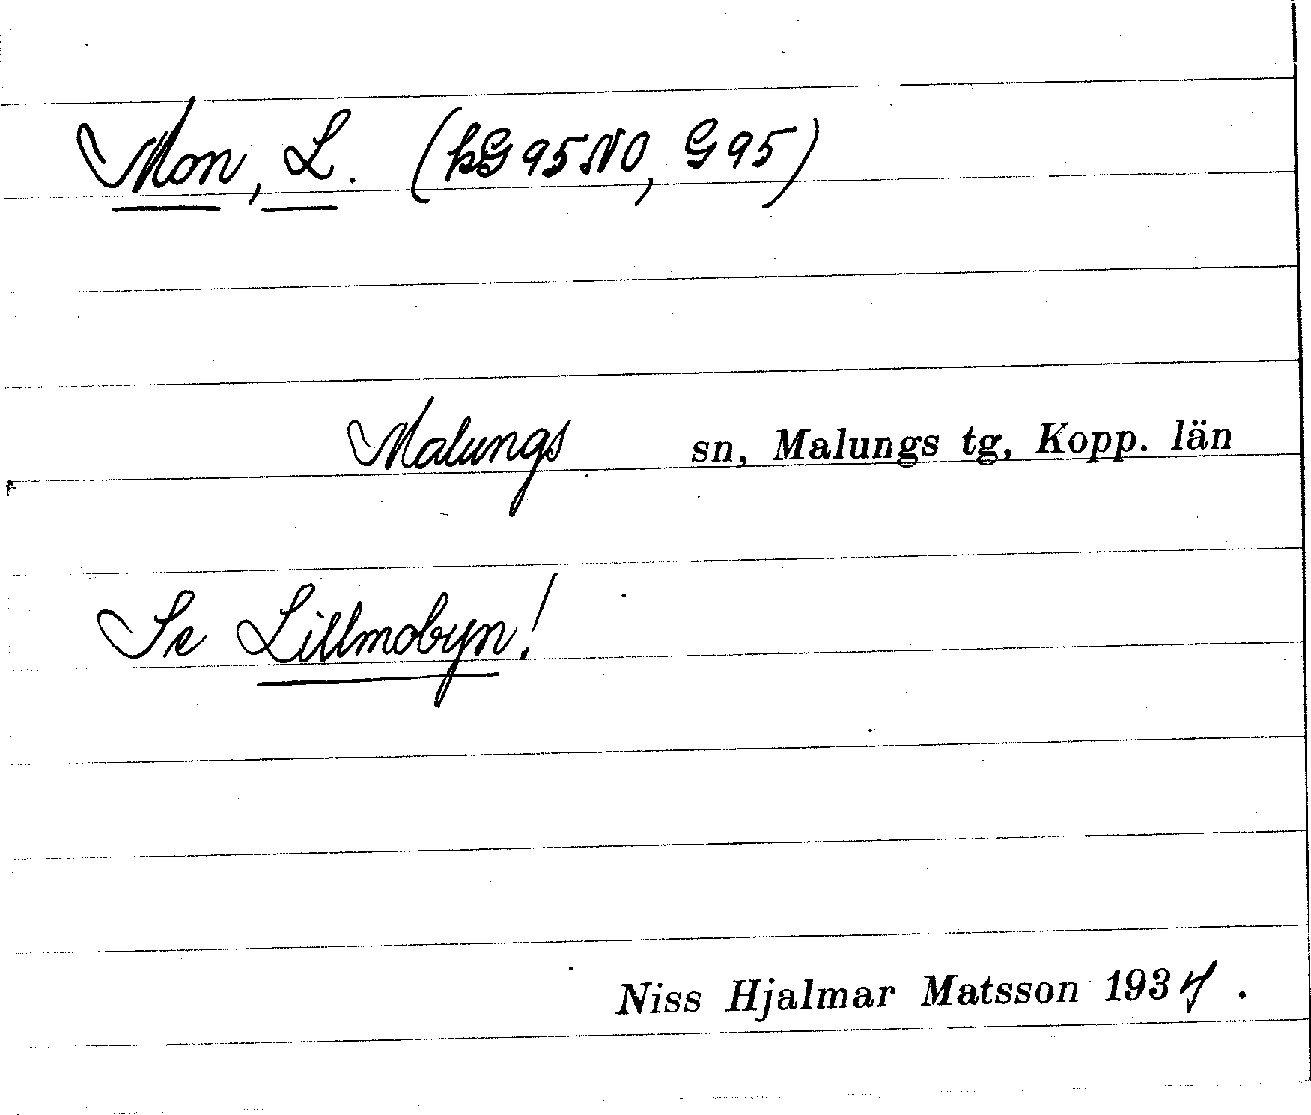 Mon, L. (kG 95 NO, G 95)
Malungs sn, Malungs tg, Kopp. län
Se Lillmobyn!
Niss Hjalmar Matsson 1934.